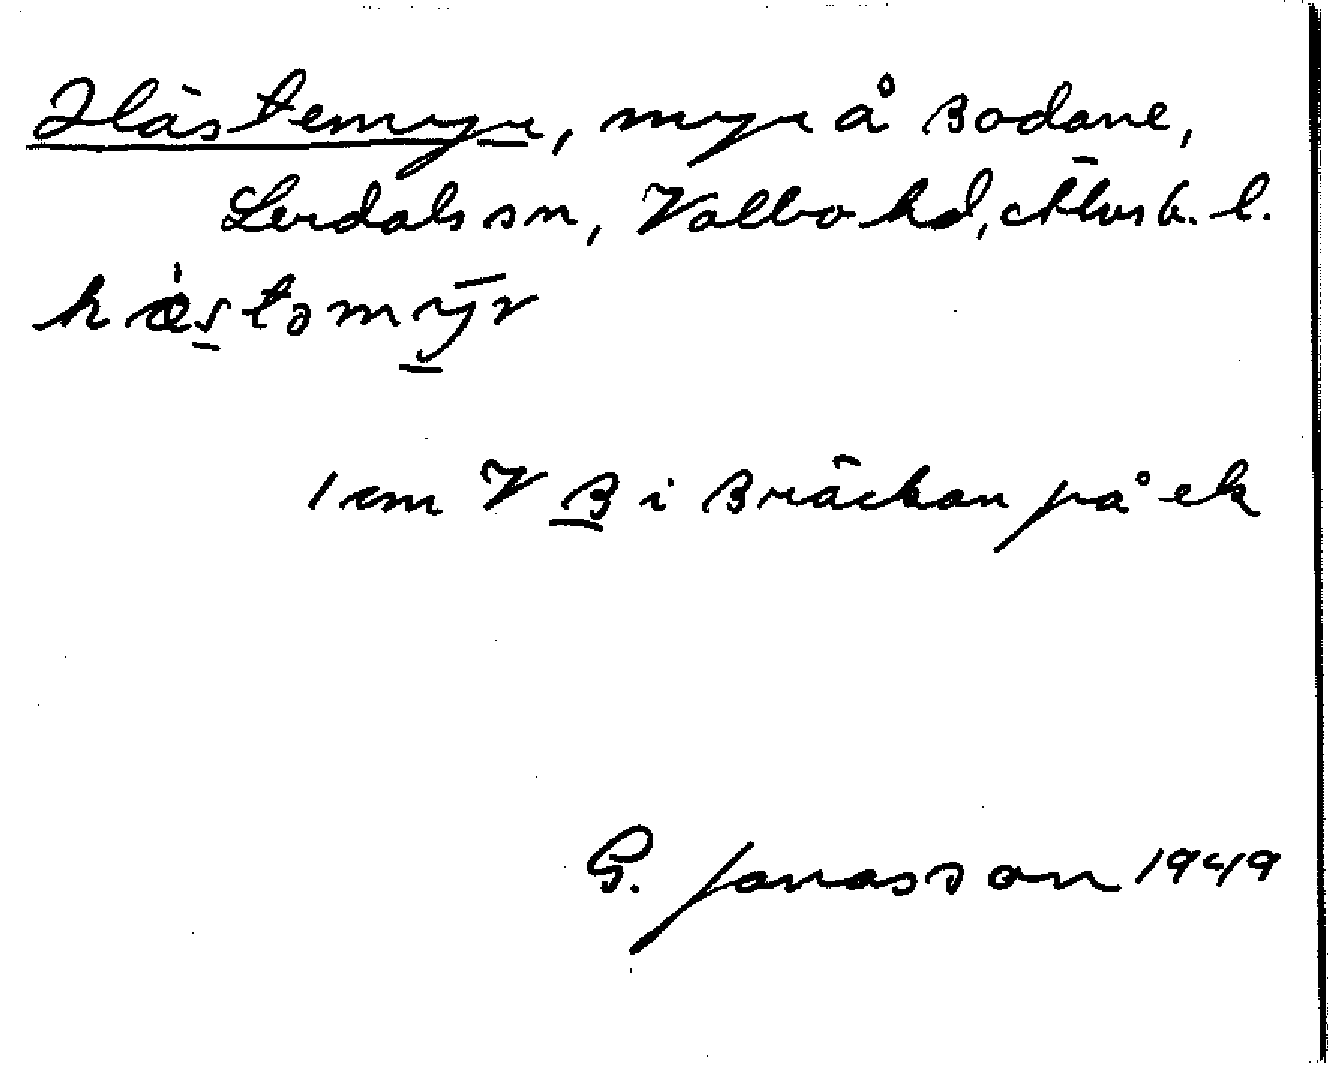 Hästemyr, myr å Bodane,
Lerdals sn, Valbo hd, Älvsb. l.
hæstəmȳr
1 cm V B i Bräckan på ek
G. Jonasson 1949